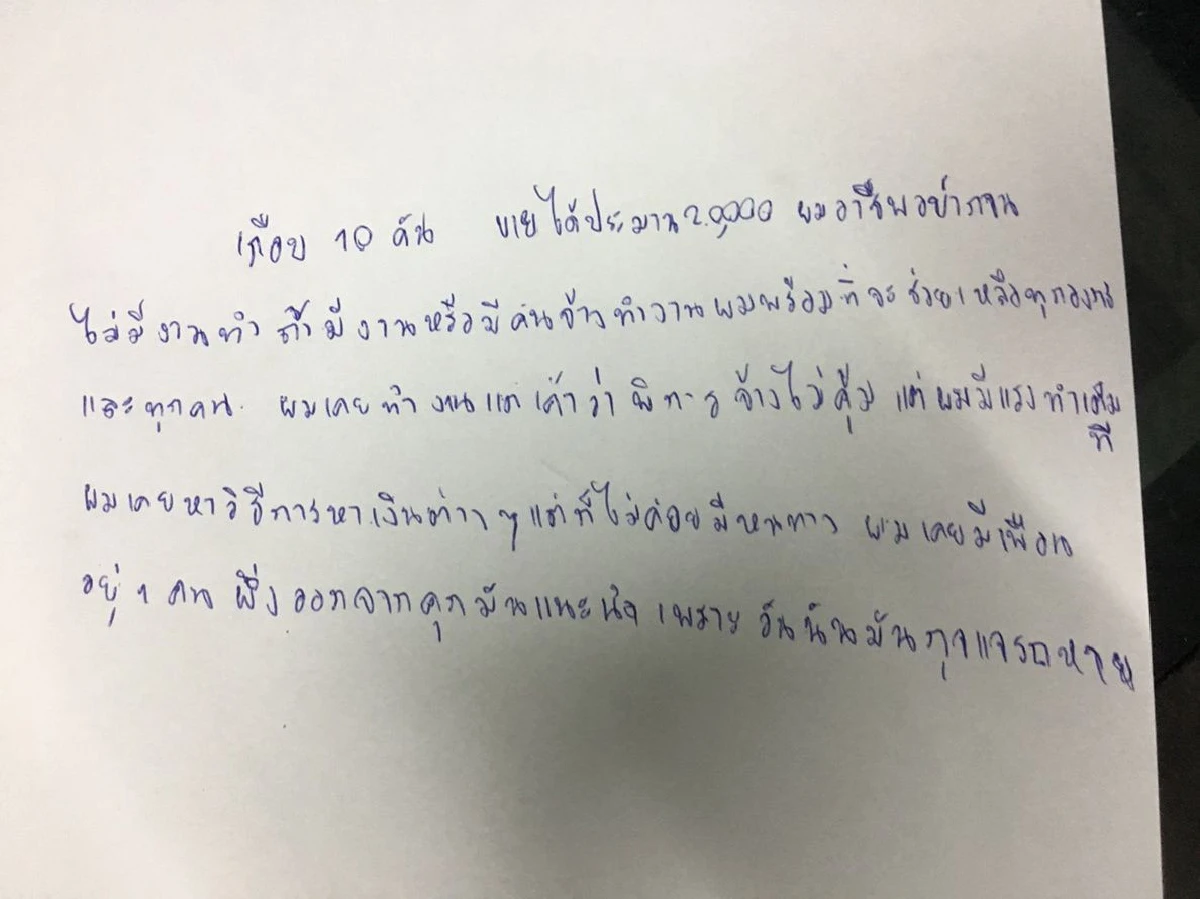 เกือบ 10 คัน ขายได้ประมาน 20,000 ผมอาชีพอยากจน
ไม่มีงานทำ ถ้ามีงานหรือมีคนจ้างทำงานผมพร้อมที่จะช่วยเหลือทุก
และทุกคน ผมเคยทำงานแต่เค้าว่าพิการจ้างไม่คุ้ม แต่ผมมีแรงทำเต็ม
ที่
ผมเคยหาวิธีการหาเงินต่าง ๆ แต่ก็ไม่ค่อยมีหนทาง ผมเคยมีเพื่อน
อยู่ 1 คน พึ่งออกจากคุกมันแนะนำ เพราะวันนั้นมันกุจแจรถหาย